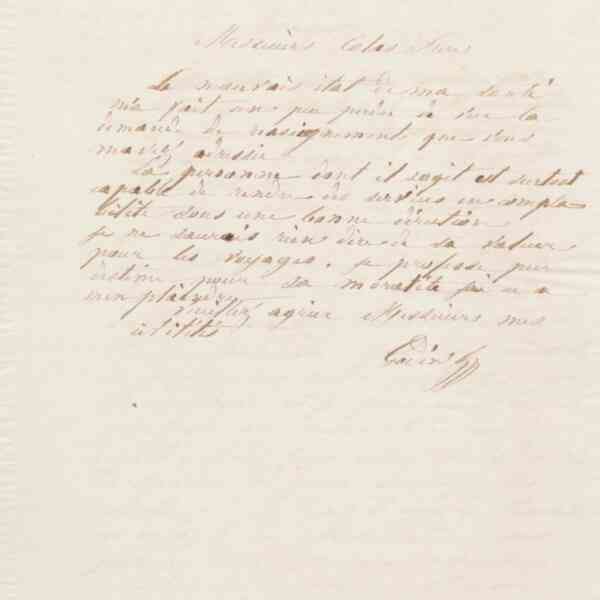 Messieurs Colas Frères
Le mauvais état de ma santé
m'a fait un peu perdre de vue la
demande de renseignements que vous
mavez adressée
La personne dont il sagit est surtout
capable de rendre des services en compta
bilité sous une bonne direction
je ne saurais rien dire de sa valeur
pour les voyages. je professe peu
destime pour sa moralité j'ai eu a
men plaindre
veuillez agréer Messieurs mes
civilités
Godin